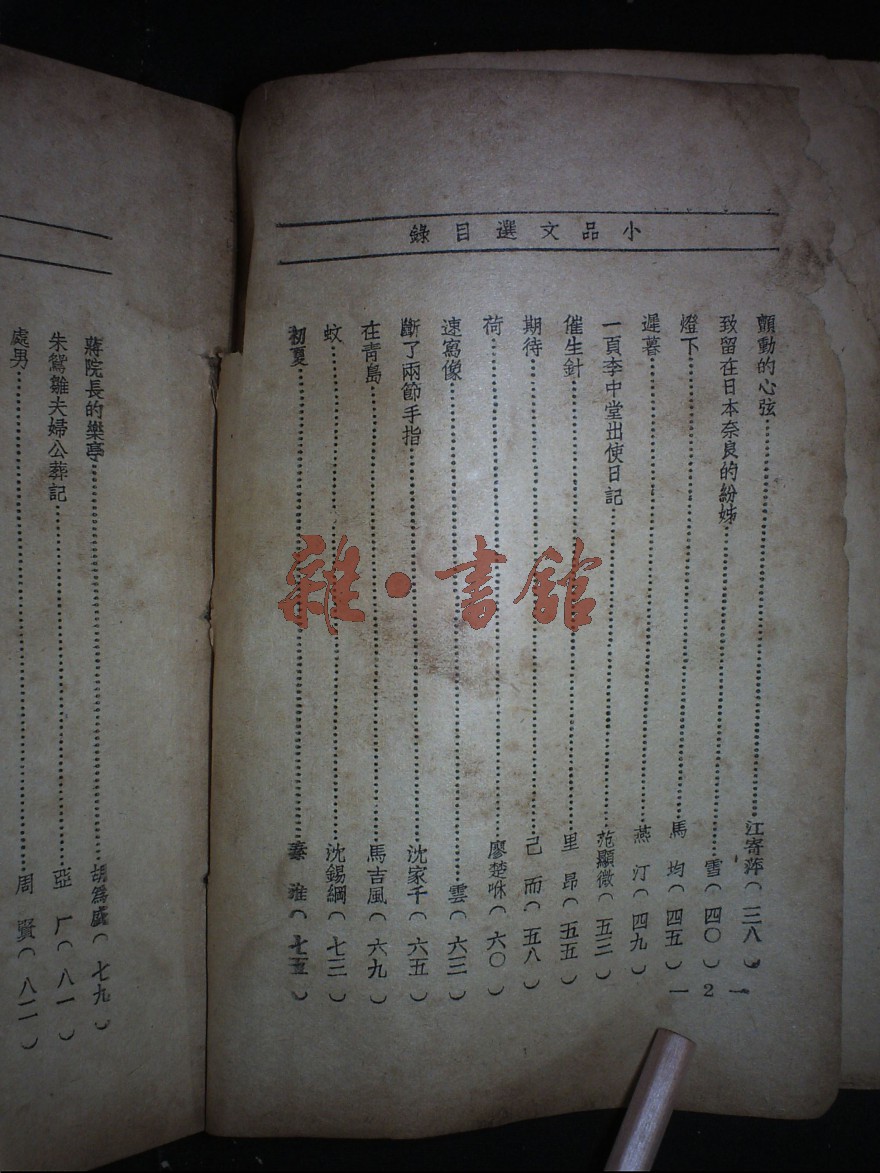 小品文選目錄
顫動的心弦……江寄萍(三八)
致留在日本奈良的紛姊……雪(四〇)
燈下……馬均(四五)
遲暮……燕汀(四九)
一頁李中堂出使日記……范顯微(五三)
催生針……里昂(五五)
期待……己而(五八)
荷……廖楚咻(六〇)
速寫像……雲(六三)
斷了兩節手指……沈家千(六五)
在青島……馬吉風(六九)
蚊……沈錫綱(七三)
初夏……秦淮(七五)
— 2 —
蔣院長的樂亭……胡爲盛(七九)
朱鴛雛夫婦公葬記……亞厂(八一)
處男……周賢(八二)
雜·書館